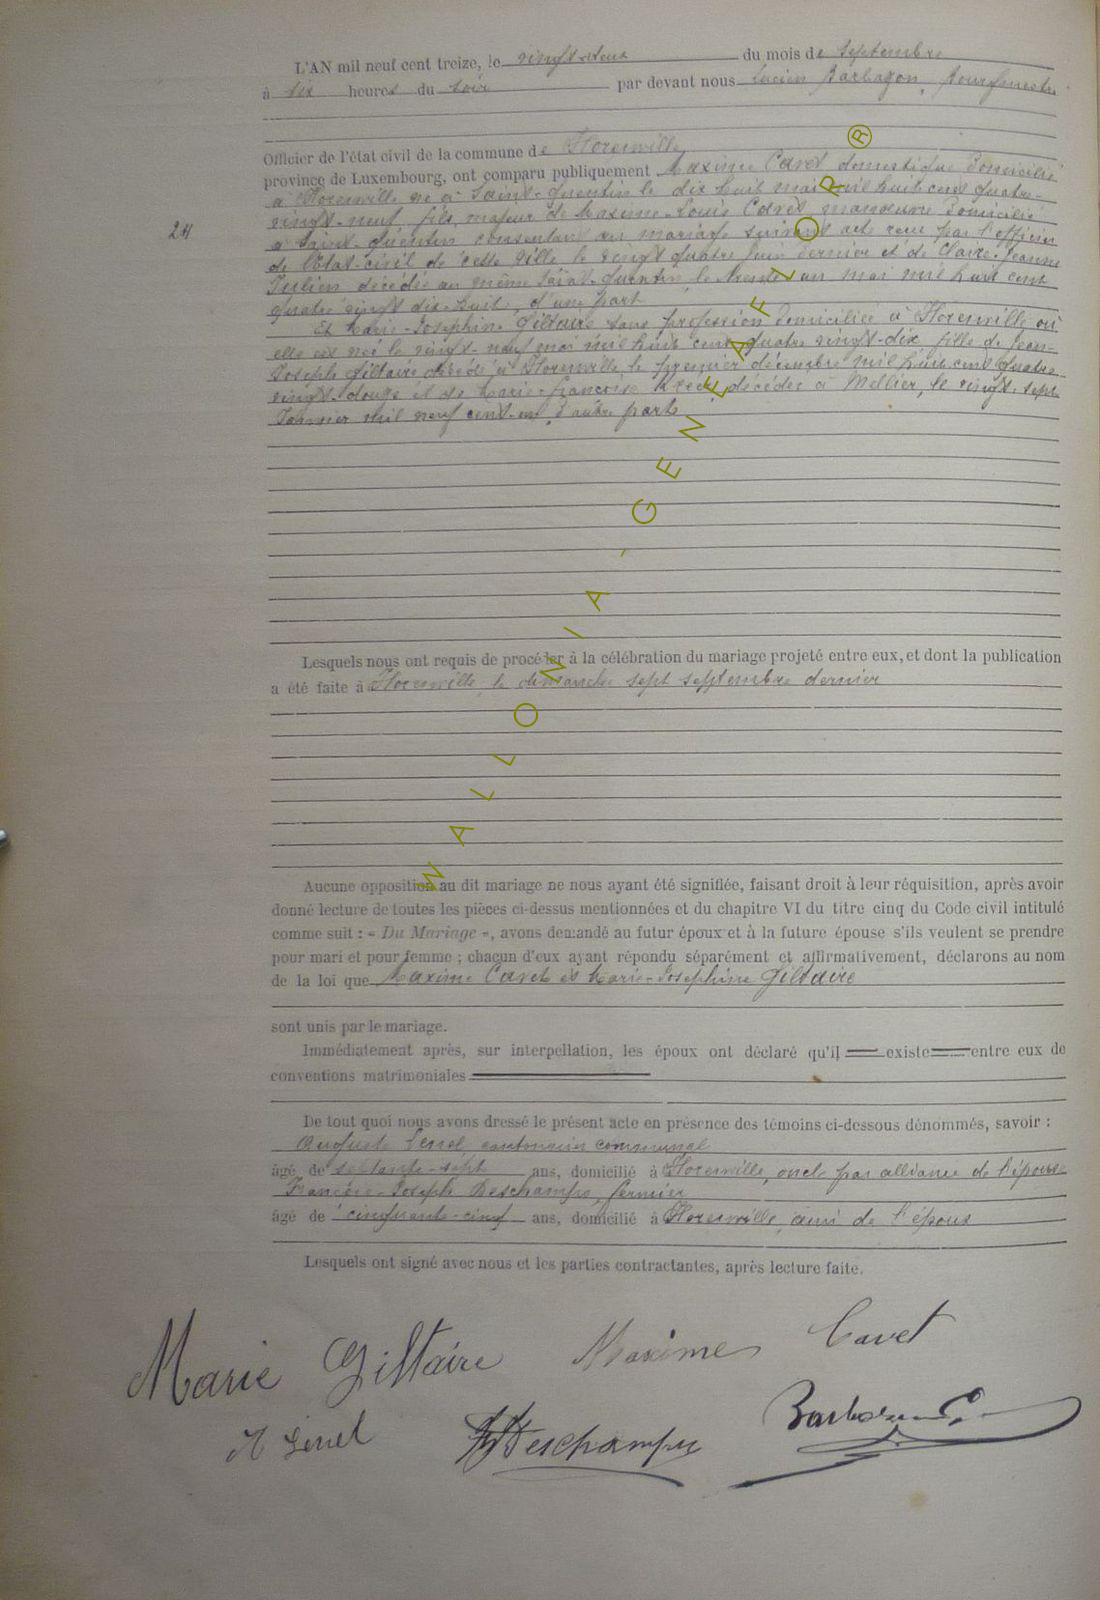 L'AN mil neuf cent treize, le vingt-deux du mois de Septembre
à six heures du soir par devant nous Lucien Barbazon, Bourgmestre
Officier de l'état civil de la commune de Florenville
province de Luxembourg, ont comparu publiquement Maxime Cavet domestique domicilié
à Florenville né à Saint-Quentin le dix huit mai mil huit cent quatre-
24
vingt-neuf, fils majeur de Maxime-Louis Cavet, manœuvre domicilié
à Saint-Quentin consentant au mariage suivant acte reçu par l'officier
de l'Etat-civil de cette ville le vingt quatre Juin dernier et de Claire-Jeanne
Julien décédée au même Saint-Quentin, le trente un mai mil huit cent
quatre vingt dix-huit, d'une part
Et Marie-Josephine Giltaire sans profession domiciliée à Florenville où
elle est née le vingt-neuf mai mil huit cent quatre vingt-dix, fille de Jean-
Joseph Giltaire décédé à Florenville, le premier décembre mil huit cent quatre-
vingt-douze et de Marie-françoise décédée à Mellier, le vingt-sept
Janvier mil neuf cent-un, d'autre part
Lesquels nous ont requis de procéder à la célébration du mariage projeté entre eux, et dont la publication
a été faite à Florenville, le dimanche sept septembre dernier
Aucune opposition au dit mariage ne nous ayant été signifiée, faisant droit à leur réquisition, après avoir
donné lecture de toutes les pièces ci-dessus mentionnées et du chapitre VI du titre cinq du Code civil intitulé
comme suit : « Du Mariage », avons demandé au futur époux et à la future épouse s'ils veulent se prendre
pour mari et pour femme ; chacun d'eux ayant répondu séparément et affirmativement, déclarons au nom
de la loi que Maxime Cavet et Marie-Josephine Giltaire
sont unis par le mariage.
Immédiatement après, sur interpellation, les époux ont déclaré qu'il existe entre eux de
conventions matrimoniales
De tout quoi nous avons dressé le présent acte en présence des témoins ci-dessous dénommés, savoir :
Auguste Lenel, cantonnier communal
âgé de septante-sept ans, domicilié à Florenville, oncle par alliance de l'épouse
François-Joseph Deschamps, fermier
âgé de cinquante-cinq ans, domicilié à Florenville, ami de l'époux
Lesquels ont signé avec nous et les parties contractantes, après lecture faite.
Marie Giltaire Maxime Cavet
A Lenel Deschamps
WALLONIA-GENEAFLOR®